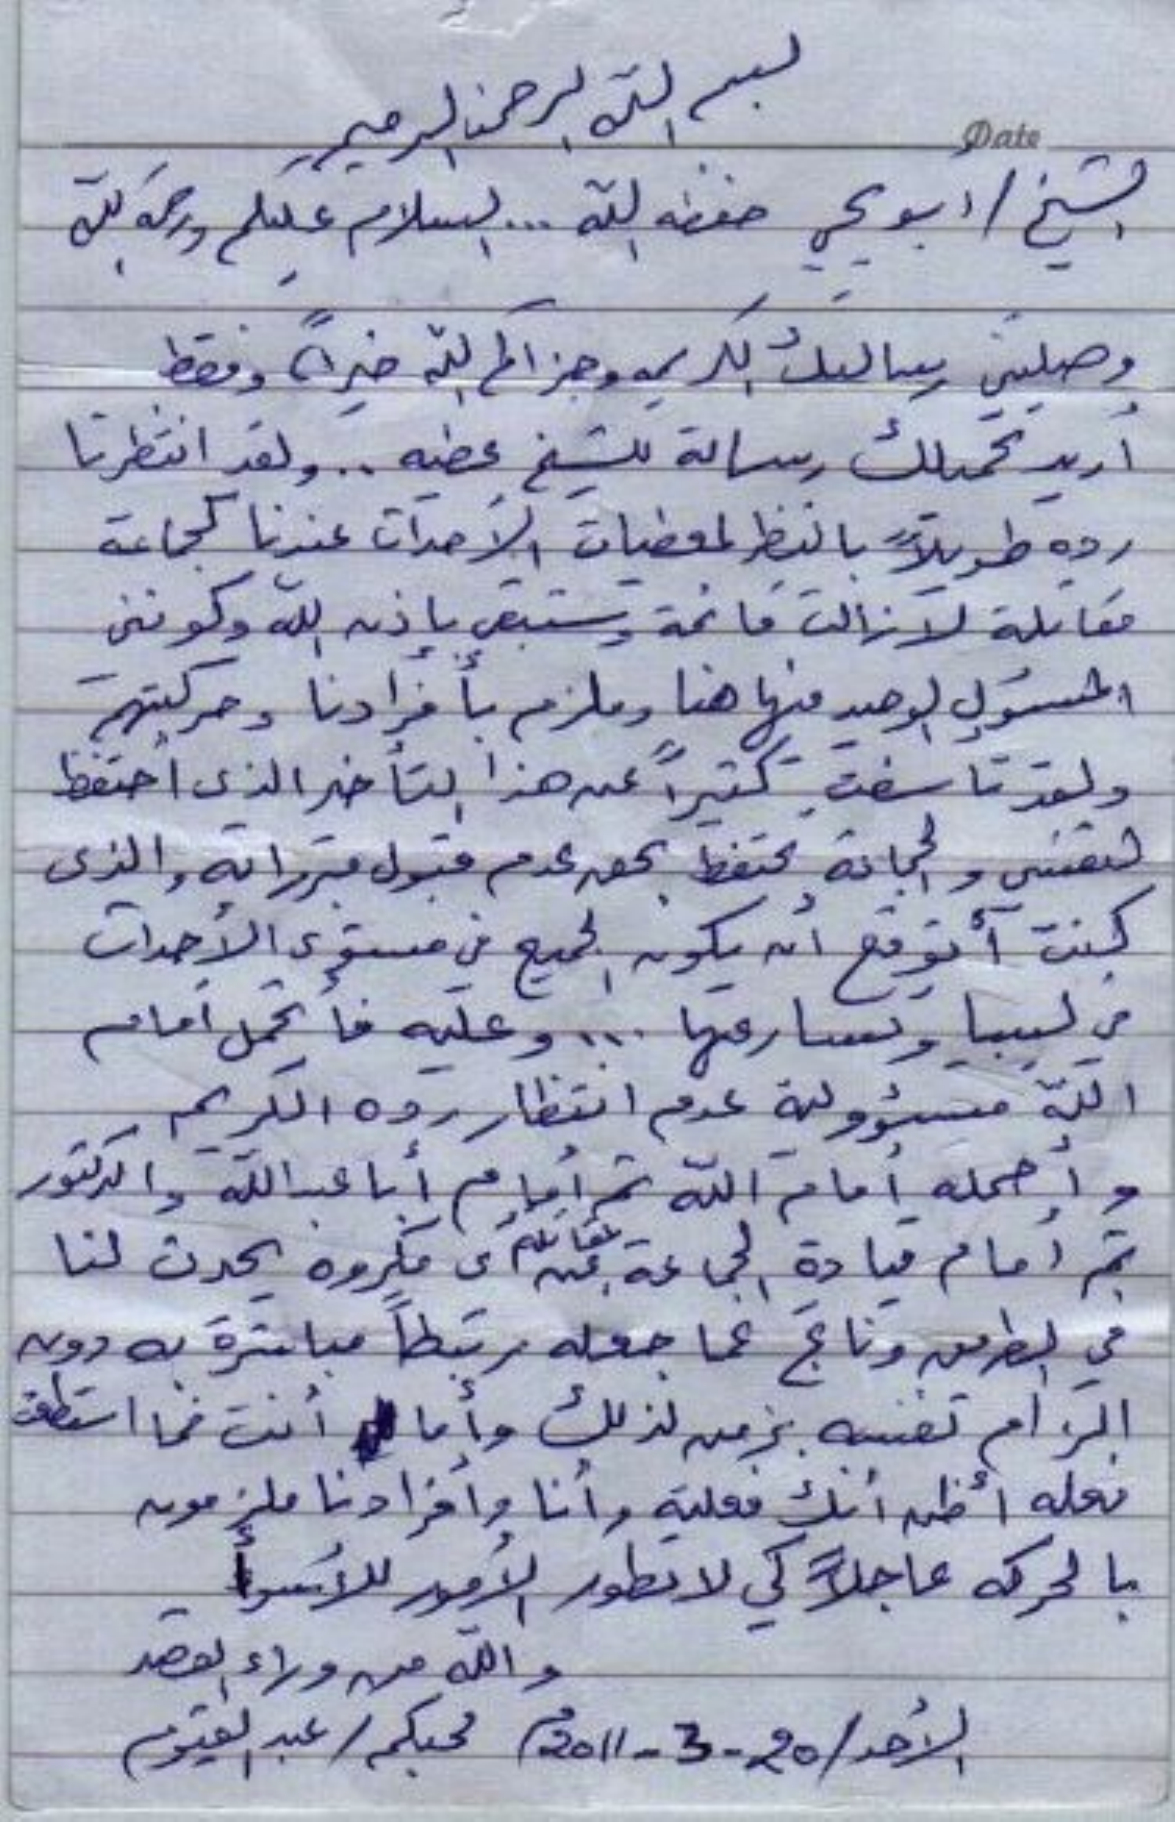 بسم الله الرحمن الرحيم
Date
الشيخ / أبو يحيى حفظه الله ... السلام عليكم ورحمة الله
وصلتني رسالتك الكريمه وجزاكم الله خيراً وفقط
أريد تحميلك رسالة للشيخ عطيه .. ولقد انتظرنا
رده طويلاً بالنظر لمعطيات الأحداث عندنا كجماعة
مقاتلة لازالت قائمة وستبقى بإذن الله وكونني
المسؤول الوحيد منها هنا وملزم بأفرادنا وحركتهم
ولقد تأسفت كثيراً عن هذا التأخير الذى أحتفظ
لنفسي والجماعة تحتفظ بحق عدم قبول مبرراته والذى
كنت أتوقع أن يكون الجميع في مستوى الأحداث
في ليبيا وتسارعها ... وعليه فأتحمل أمام
الله مسؤولية عدم انتظار رده الكريم
وأحمله أمام الله ثم أمام أبا عبدالله والدكتور
ثم أمام قيادة الجماعة المقاتلة عن أى مكروه يحدث لنا
في الطريق وناتج عما جعله مرتبطاً مباشرة به دون
الزام نفسه بزمن لذلك وأما أنت فما استطعت
فعله أظن أنك فعلته وأنا وأفرادنا ملزمون
بالحركه عاجلاً كي لا تطور الأمور للأسوأ
والله من وراء القصد
الأحد / 20-3-2011م محبكم / عبد القيوم